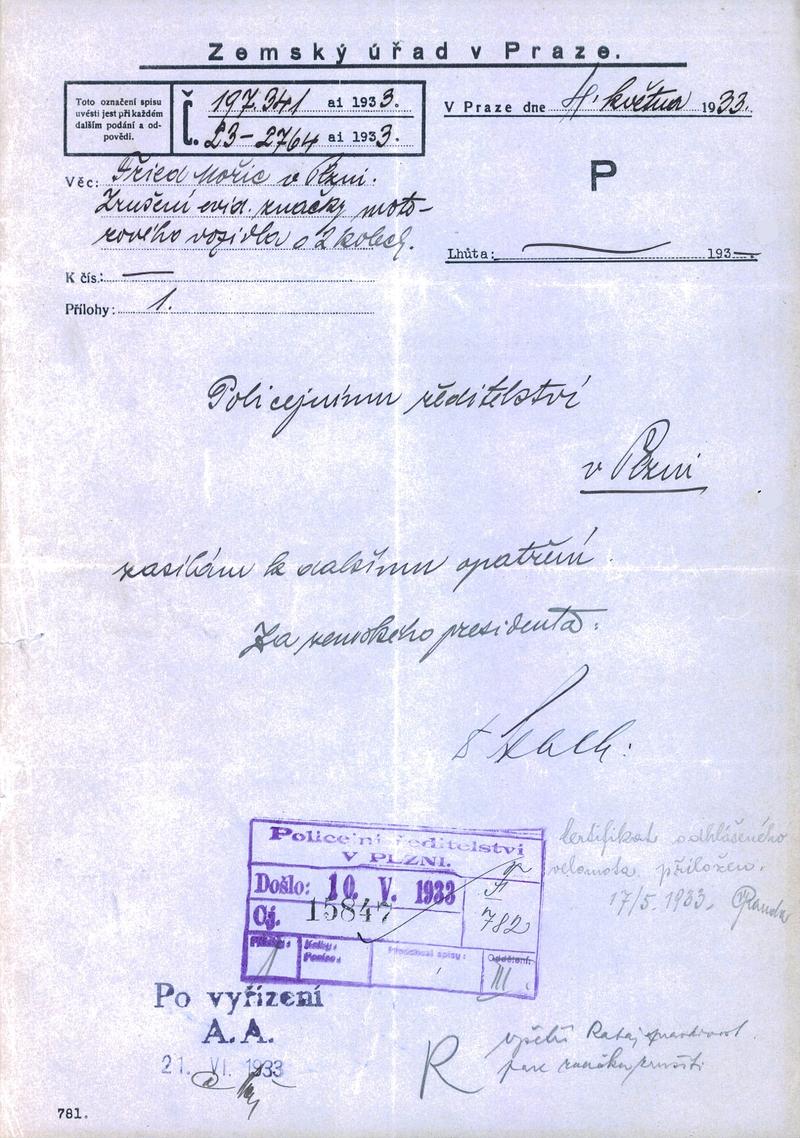 Zemský úřad v Praze.
Toto označení spisu
uvésti jest při každém
dalším podání a od-
povědi.
Č. 197.341 ai 1933.
23-2764 ai 1933.
V Praze dne 4. května 1933.
P
Věc: Fried Mořic v Plzni.
Zrušení evid. značky moto-
rového vozidla o 2 kolech.
Lhůta: 193
K čís.: —
Přílohy: 1.
Policejnímu ředitelství
v Plzni
zasílám k dalšímu opatření.
Za zemského presidenta:
Policejní ředitelství
V PLZNI.
Došlo: 10. V. 1933
Čj. 15847
782
Přílohy: 1
Kolky:
Předchozí spisy:
Oddělení:
III.
Certifikát odhlášeného
velomota přiložen.
17/5. 1933. Randa
Po vyřízení
A.A.
21. VI. 1933
R
vyšetří Rataj
značku zrušiti
781.